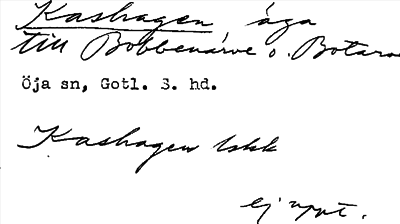 Kashagen äga
till Bobbenärve o. Botarve
Öja sn, Gotl. S. hd.
Kashagen bskk
ej uppt.